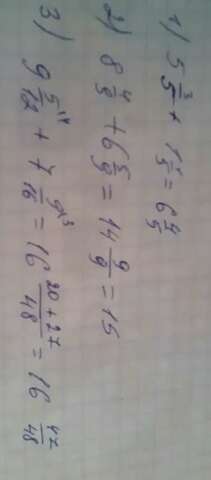 1) 5 3/5 + 1 1/5 = 6 4/5
2) 8 4/9 + 6 5/9 = 14 9/9 = 15
3) 9 5/12 ^4 + 7 9/16 ^3 = 16 20+27/48 = 16 47/48